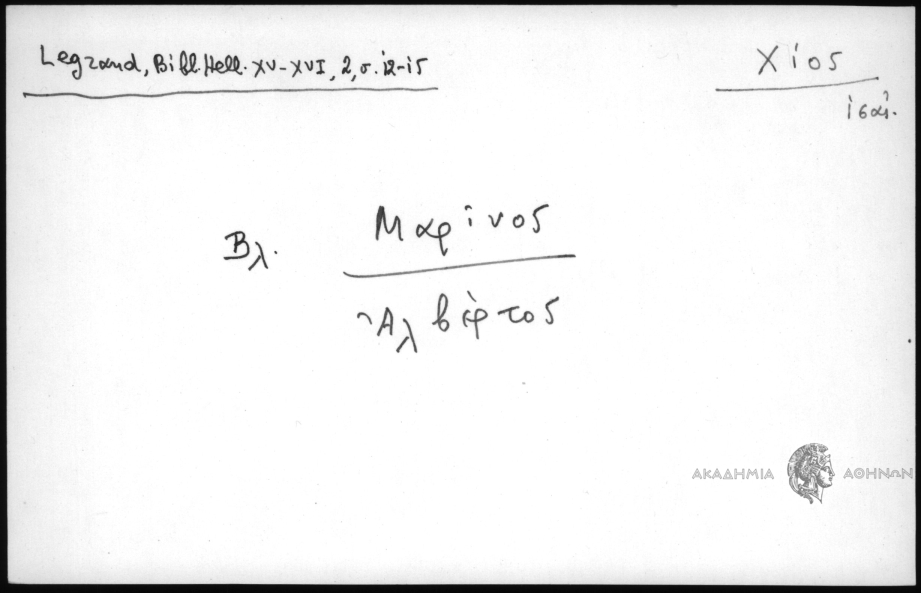 Legrand, Bibl. Hell. XV-XVI, 2, σ. 12-15
Χίος
Βλ. Μαρίνος
Ἀλβέρτος
ΑΚΑΔΗΜΙΑ ΑΘΗΝΩΝ